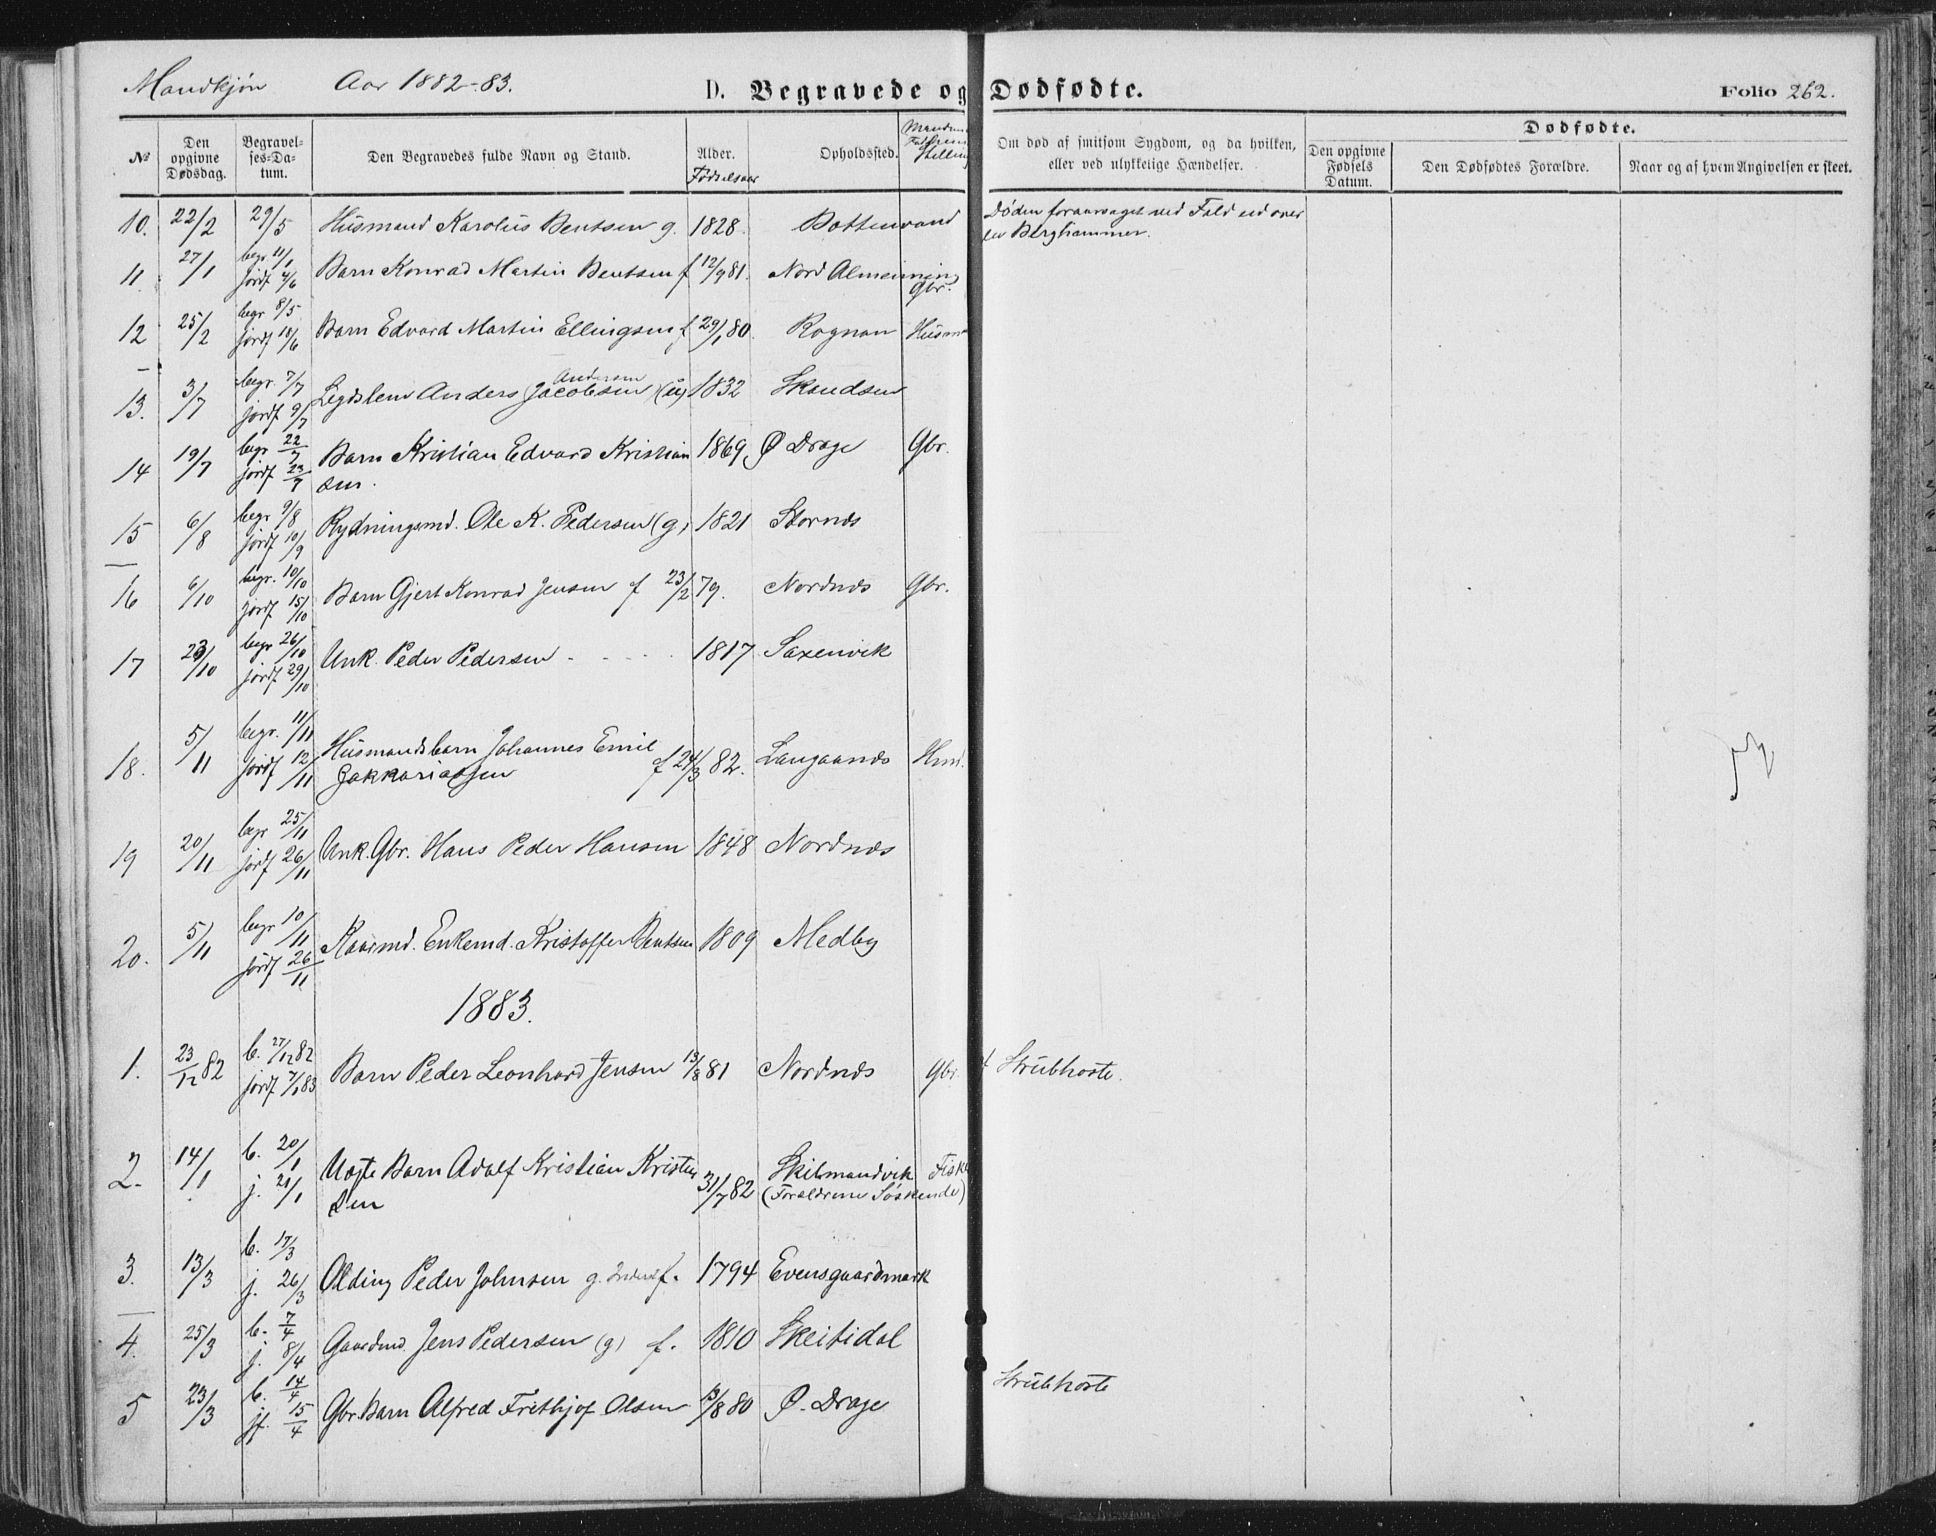 Mandkjøn Aar 1882-83. D. Begravede og Dødfødte. Folio 262.
№ Den opgivne Dødsdag. Begravelses-Datum. Den Begravedes fulde Navn og Stand. Alder. Fødselsaar Opholdssted. Om død af smitsom Sygdom, og da hvilken, eller ved ulykkelige Hændelser. Dødfødte. Den opgivne Fødsels Datum. Den Dødfødtes Forældre. Naar og af hvem Angivelsen er skeet.
10. 22/2 29/5 Husmand Karolus Bentsen g. 1828. Bottenvand Døden foraarsaget ved Fald ud over
en Berghammer.
11. 27/1 begr. 11/1 jordf 4/6 Barn Konrad Martin Bentsen f 12/9 81. Nord Almenning Gbr.
12 25/2 begr 8/5 jordf 18/6 Barn Edvard Martin Ellingsen f 29/1 80. Rognan Husm
13. 3/7 begr. 7/7 jordf 9/7 Legdslem Anders Jacobsen Andersen (u) 1832 Skandsen
14 19/7 begr 22/7 jordf 23/7 Barn Kristian Edvard Kristian
sen. 1869 Ø Drage Gbr.
15 6/8 begr 9/8 jordf 10/9 Rydningsmd. Ole K. Pedersen (g) 1821 Stornæs
16 6/10 begr. 10/10 jordf 15/10 Barn Gjert Konrad Jensen f 23/2 79. Nordnæs Gbr.
17 23/10 begr 26/10 jordf 29/10 Unk. Peder Pedersen - - - - 1817 Saxenvik
18. 5/11 begr. 11/11 jordf 12/11 Husmandsbarn Johannes Emil
Zakkariassen f 24/3 82. Langaanæs Hmd.
19 20/11 begr 25/11 jordf 26/11 Unk. Gbr. Hans Peder Hansen 1848 Nordnæs
20. 5/11 begr 10/11 jordf 26/11 Kaarmd. Enkemd. Kristoffer Bentsen 1809 Medby
1883.
1. 23/12 82 b. 27/12 82 jordf 7/1 83 Barn Peder Leonhard Jensen 13/8 81 Nordnæs Gbr Strubhoste.
2. 14/1 b. 20/1 j. 21/1 Uægte Barn Adolf Kristian Kristen
sen 31/7 82 Skilmandvik Fisk
(Forældrene Søskende)
3. 13/3 b. 17/3 j. 26/3 Olding Peder Johnsen g. Inderst f. 1794 Evensgaardmark
4. 25/3 b. 7/4 j. 8/4 Gaardmd Jens Pedersen (g) f. 1810 Skeitidal
5 23/3 b. 14/4 jf. 15/4 Gbr. Barn Alfred Frithjof Olsen /8 80 Ø. Drage Strubhoste